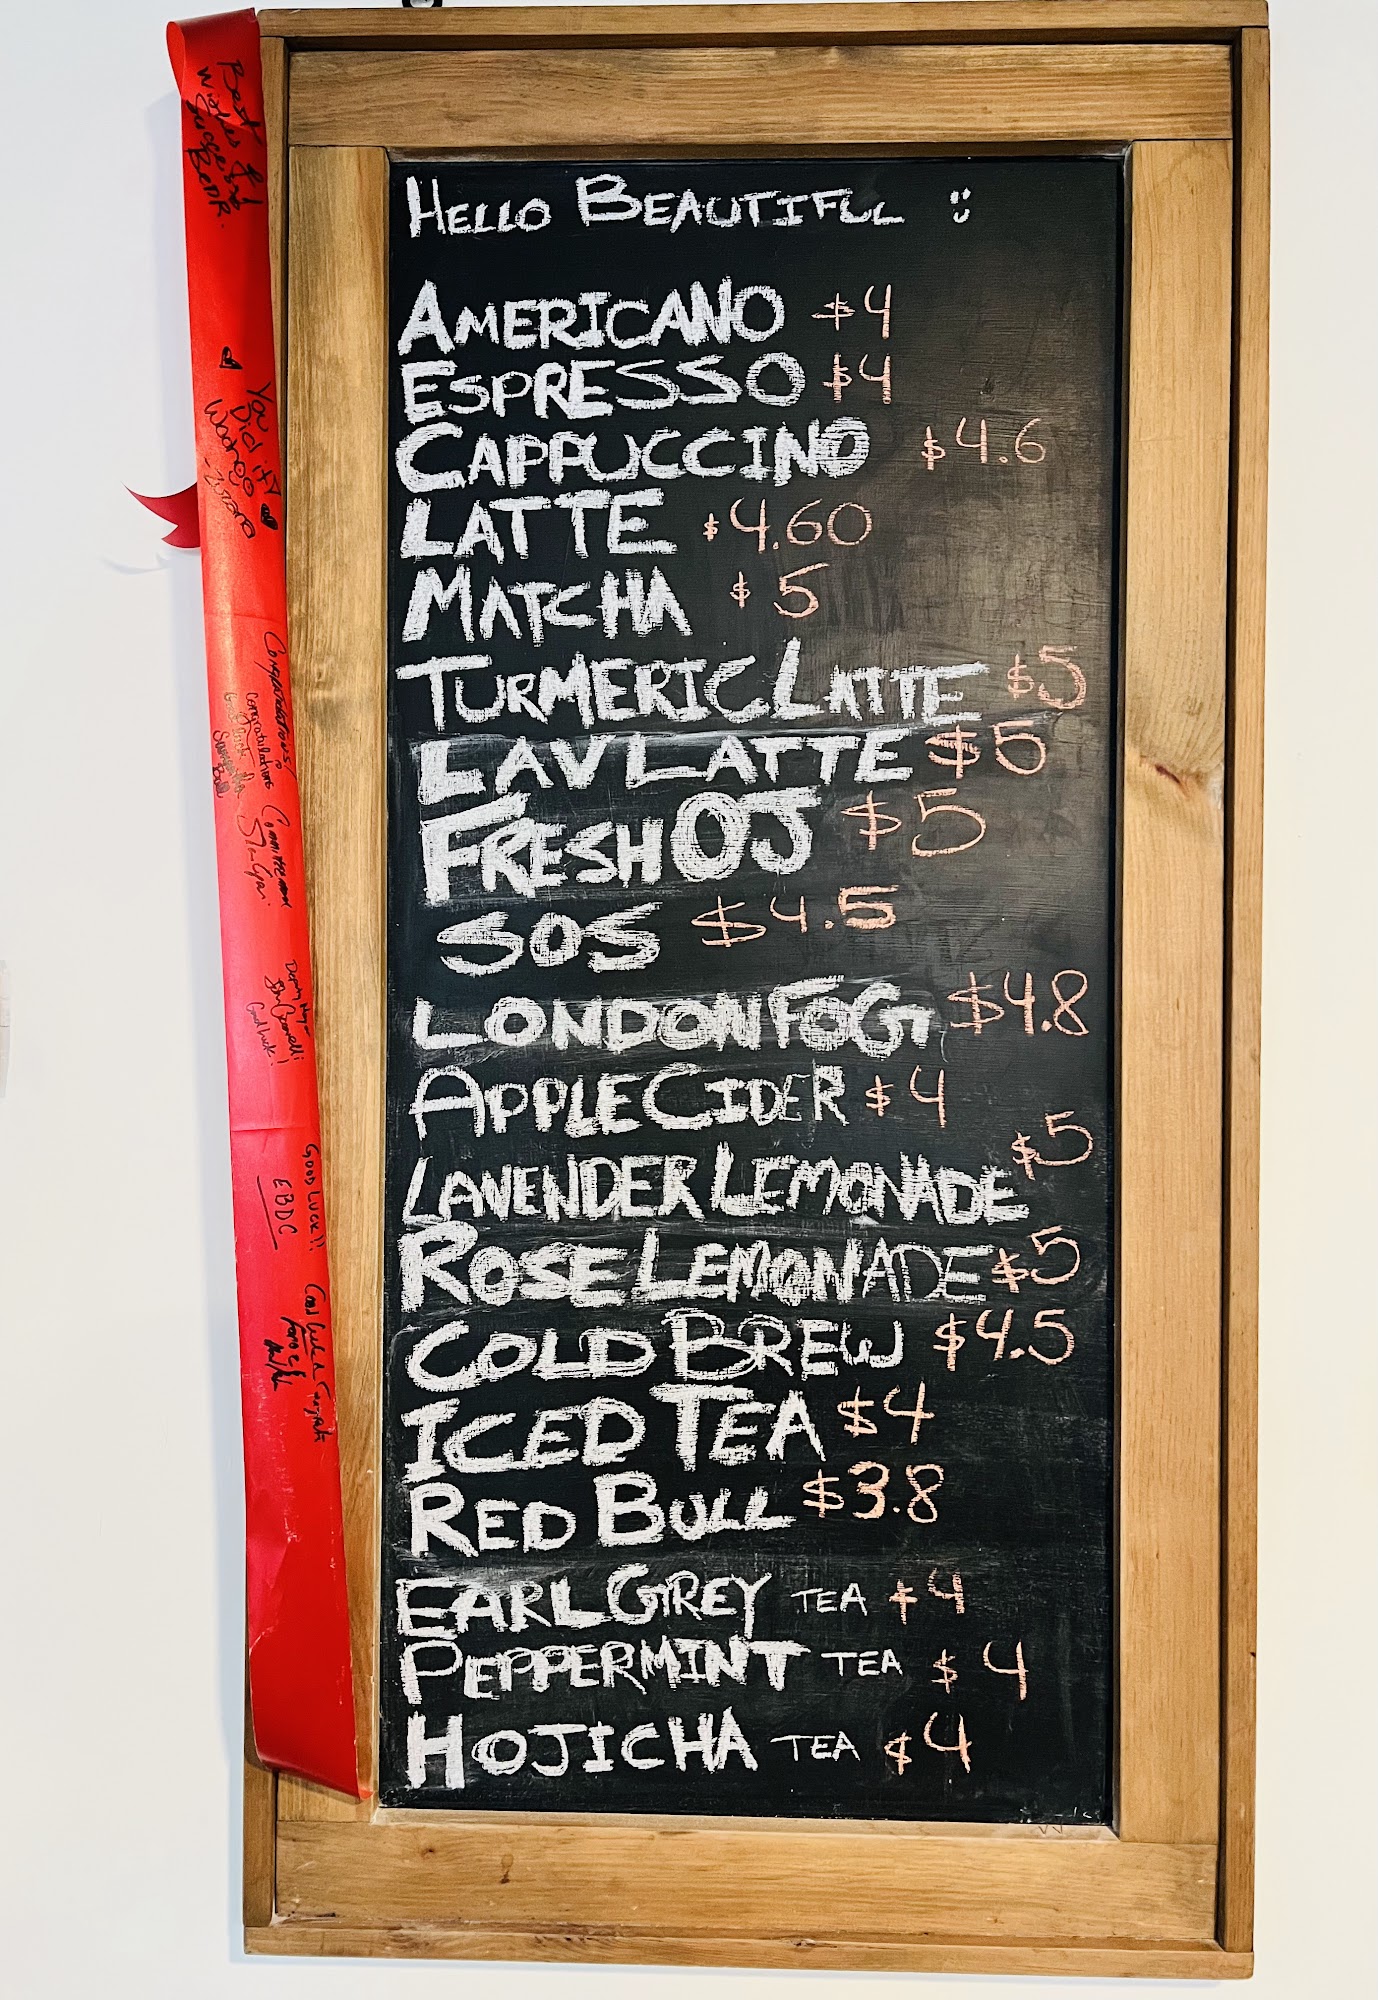 HELLO BEAUTIFUL :)
AMERICANO $4
ESPRESSO $4
CAPPUCCINO $4.6
LATTE $4.60
MATCHA $5
TURMERIC LATTE $5
LAV LATTE $5
FRESH OJ $5
SOS $4.5
LONDON FOG $4.8
APPLE CIDER $4
LAVENDER LEMONADE $5
ROSE LEMONADE $5
COLD BREW $4.5
ICED TEA $4
RED BULL $3.8
EARL GREY TEA $4
PEPPERMINT TEA $4
HOJICHA TEA $4
Best
wishes
You
Did it
Congratulations
Congratulations
Good luck!
GOOD LUCK!!
EBDC